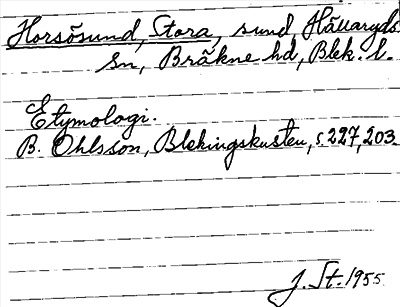 Horsösund, Stora, sund, Hällaryds
sn, Bräkne hd, Blek. l.
Etymologi.
B. Ohlsson, Blekingskusten, s. 227, 203.
J. St. 1955